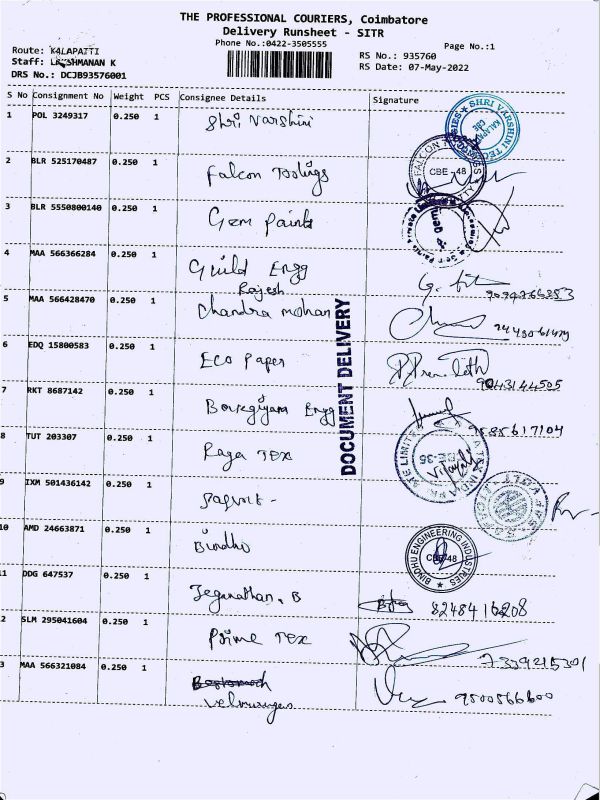 THE PROFESSIONAL COURIERS, Coimbatore
Delivery Runsheet - SITR
Phone No.:0422-3505555
Page No.:1
Route: KALAPATTI
RS No.: 935760
Staff: LAKSHMANAN K
RS Date: 07-May-2022
DRS No.: DCJB93576001
S No Consignment No Weight PCS Consignee Details Signature
1 POL 3249317 0.250 1 Shri Varshini
SHRI VARSHINI
2 BLR 525170487 0.250 1 Falcon Toolings
FALCON
CBE - 48
3 BLR 5550800140 0.250 1 Gem paints
4 MAA 566366284 0.250 1 Guild Engg
Rajesh
5 MAA 566428470 0.250 1 Chandra mohan
DOCUMENT DELIVERY
6 EDQ 15800583 0.250 1 Eco Paper
9043144505
7 RKT 8687142 0.250 1 Engg
8 TUT 203307 0.250 1 Raga Tex
9 IXM 501436142 0.250 1
10 AMD 24663871 0.250 1 Bindhu
BINDHU ENGINEERING INDUSTRIES
CBE-48
11 DDG 647537 0.250 1 Jeganathan. B
2 SLM 295041604 0.250 1 Prime Tex
7339215301
3 MAA 566321084 0.250 1
Velmurugan 9500566600